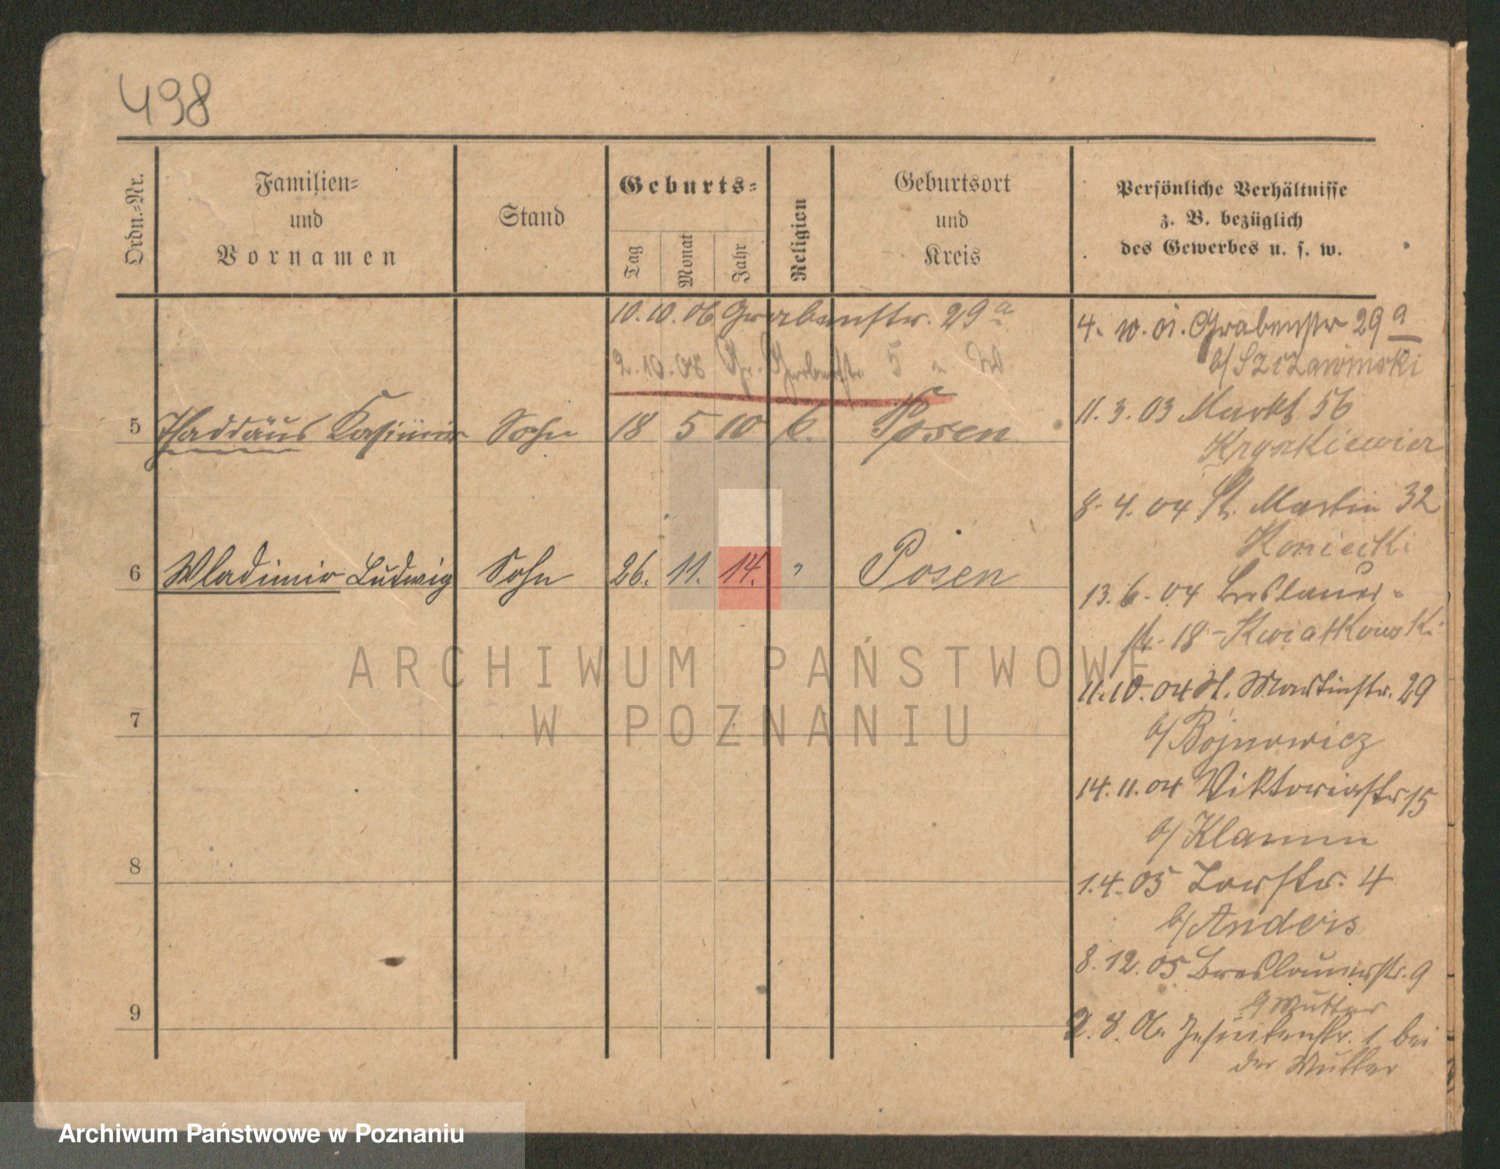 498
Ordn.-Nr.
Familien-
und
Vornamen
Stand
Geburts-
Tag
Monat
Jahr
Religion
Geburtsort
und
Kreis
Persönliche Verhältnisse
z. B. bezüglich
des Gewerbes u. s. w.
10.10.06 Grabenstr. 29a
2.10.08
5 Thaddäus Kasimir Sohn 18 5 10 k. Posen
6 Wladimir Ludwig Sohn 26. 11. 14. " Posen
7
8
9
4. 10. 01. Grabenstr 29a
b/
11. 3. 03 Markt 56
Kryszkiewicz
8. 4. 04 St. Martin 32
Koniecki
13. 6. 04 Breslauer-
str. 18 - Kwiatkowski
11.10.04 St. Martinstr. 29
b/ Bojnowicz
14.11.04 Viktoriastr 15
b/ Klamm
1.4.05 Torstr. 4
b/ Anders
8.12.05 Breslauerstr. 9
Mutter
Jesuitenstr. 1 bei
der Mutter
ARCHIWUM PAŃSTWOWE
W POZNANIU
Archiwum Państwowe w Poznaniu